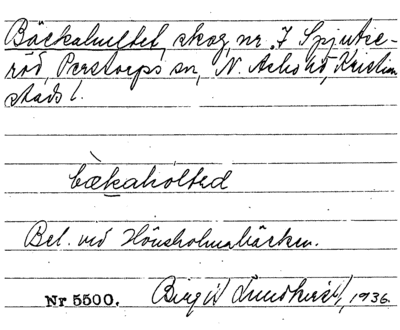 Bäckahultet, skog, nr 7 Spjutse-
röd, Perstorps sn, N. Åsbo hd, Kristian
stads l.
bækaholted
Bel. vid Hönsholmakärken.
Nr 5500. Birgit Lundkvist, 1936.